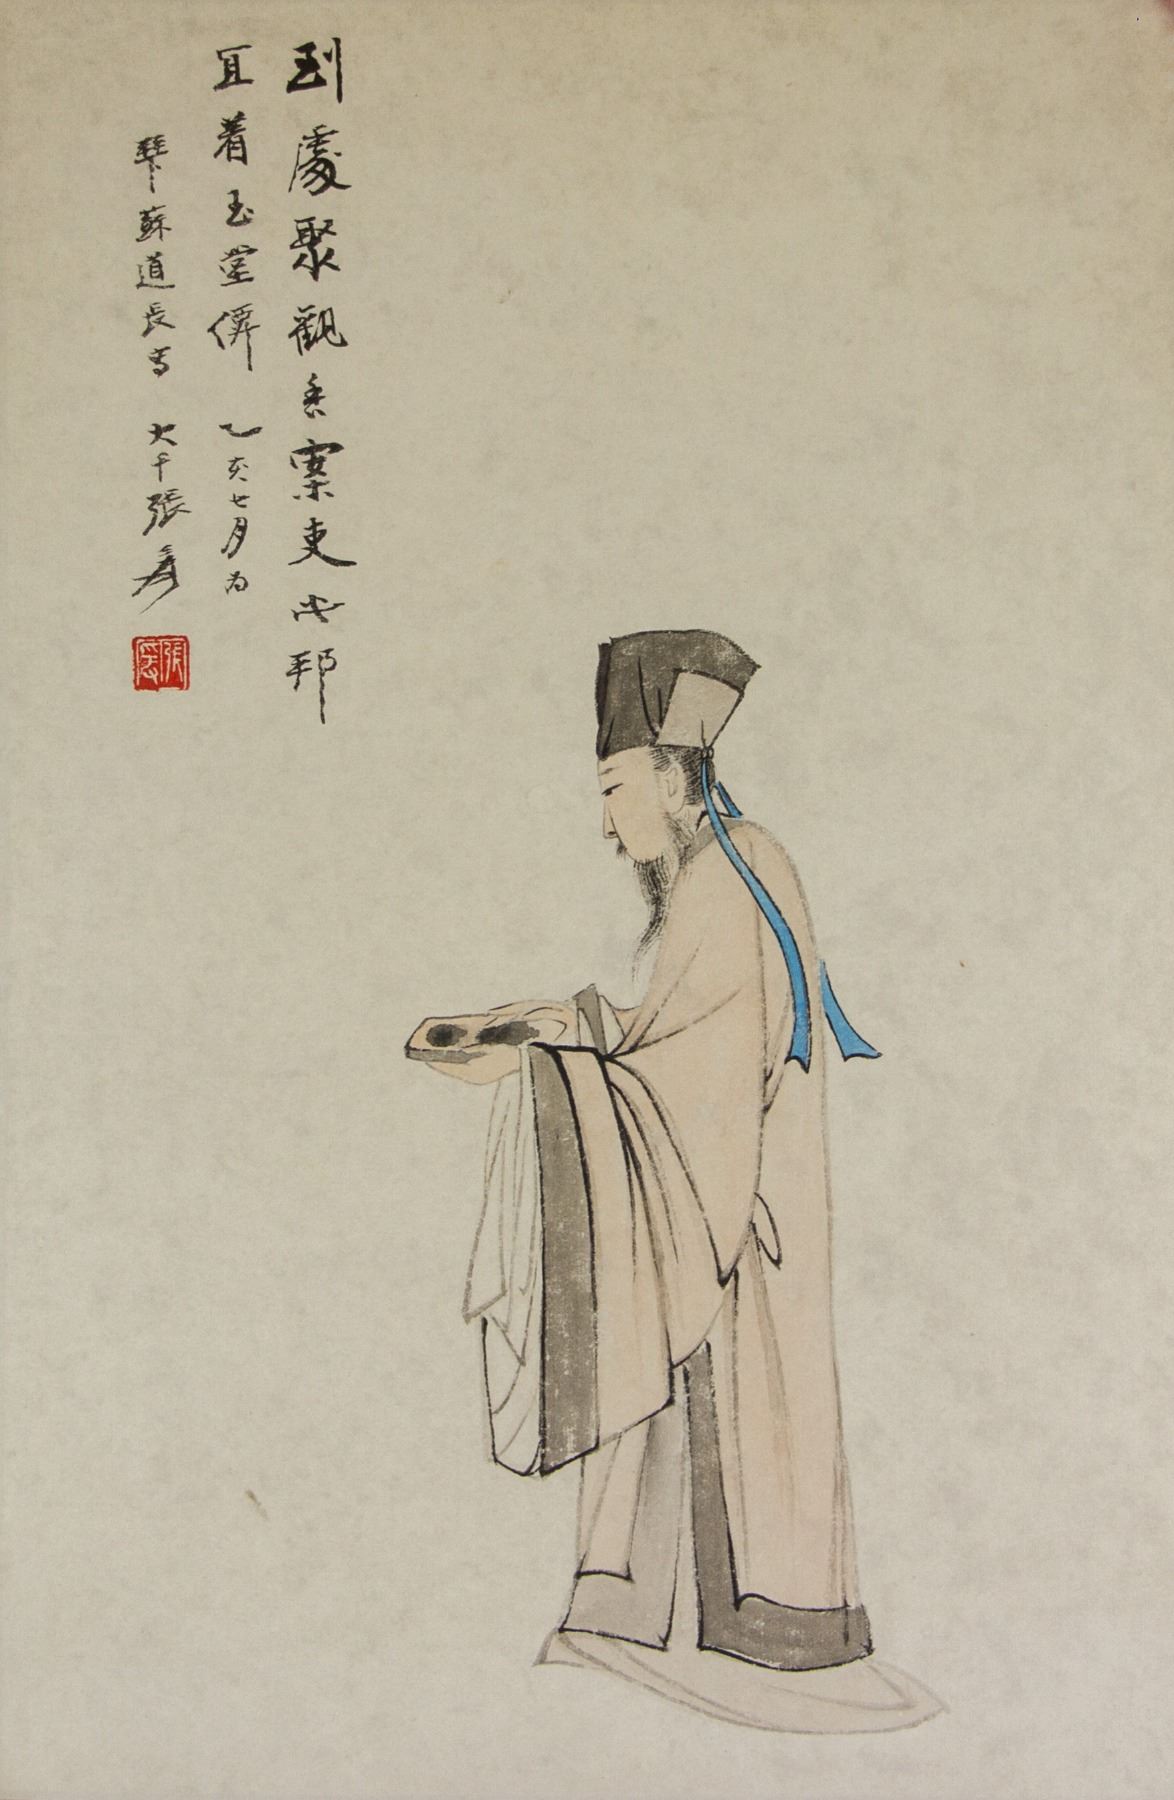 到處聚觀香案吏此邦
宜着玉堂僊 乙亥七月為
琴蘇道長寫 大千張爰
張爰